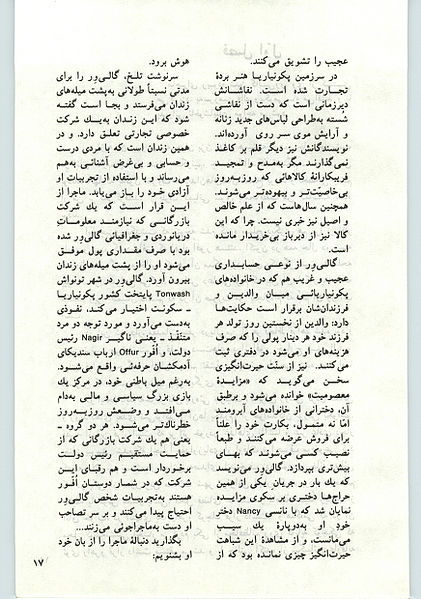 عجیب را تشویق می‌کنند.
در سرزمین پکونیاریا هنر بردهٔ
تجارت شده است. نقاشانش
دیرزمانی است که دست از نقاشی
شسته به‌طراحی لباس‌های جدید زنانه
و آرایش موی سر روی آورده‌اند.
نویسندگانش نیز دیگر قلم بر کاغذ
نمی‌گذارند مگر به‌مدح و تمجید
فریبکارانهٔ کالاهائی که روزبه‌روز
بی‌خاصیّت‌تر و بیهوده‌تر می‌شوند.
همچنین سال‌هاست که از علم خالص
و اصیل نیز خبری نیست. چرا که این
کالا نیز از دیرباز بی‌خریدار مانده
است.
گالی‌ور از نوعی حسابداری
عجیب و غریب هم که در خانواده‌های
پکونیاریائی میان والدین و
فرزندان‌شان برقرار است حکایت‌ها
دارد: والدین از نخستین روز تولد هر
فرزند خود هر دینار پولی را که صرف
هزینه‌های او می‌شود در دفتری ثبت
می‌کنند. نیز از سنّت حیرت‌انگیزی
سخن می‌گوید که «مزایدهٔ
معصومیت» خوانده می‌شود و برطبق
آن، دخترانی از خانواده‌های آبرومند
امّا نه متمول، بکارت خود را علناً
برای فروش عرضه می‌کنند و طبعاً
نصیب کسی می‌شوند که بهای
بیش‌تری بپردازد. گالی‌ور می‌نویسد
که یك بار در جریان یکی از همین
حراج‌ها دختری بر سکوی مزایده
نمایان شد که با نانسی Nancy دختر
خود او به‌دوپارهٔ یك سیب
می‌مانست، و از مشاهدهٔ این شباهت
حیرت‌انگیز چیزی نمانده بود که از
هوش برود.
سرنوشت تلخ، گالی‌ور را برای
مدتی نسبتاً طولانی به‌پشت میله‌های
زندان می‌فرستد و بجا است گفته
شود که این زندان به‌یك شرکت
خصوصی تجارتی تعلق دارد. و در
همین زندان است که با مردی درست
و حسابی و بی‌غرض آشنائی به‌هم
می‌رساند و با استفاده از تجربیات او
آزادی خود را باز می‌یابد. ماجرا از
این قرار است که یك شرکت
بازرگانی که نیازمند معلومات
دریانوردی و جغرافیائی گالی‌ور شده
بود با صرف مقداری پول موفق
می‌شود او را از پشت میله‌های زندان
بیرون آورد. گالی‌ور در شهر تونواش
Tonwash پایتخت کشور پکونیاریا
ـ سکونت اختیار می‌کند، نفوذی
به‌دست می‌آورد و مورد توجه دو مرد
متنفّذ ـ یعنی ناگیر Nagir رئیس
دولت، و اُفُور Offur ارباب سندیکای
آدمکشان حرفه‌ئی واقع می‌شود.
به‌رغم میل باطنی خود، در مرکز یك
بازی بزرگ سیاسی و مالی به‌دام
می‌افتد و وضعش روزبه‌روز
خطرناك‌تر می‌شود. هر دو گروه ـ
یعنی هم یك شرکت بازرگانی که از
حمایت مستقیم رئیس دولت
برخوردار است و هم رقبای این
شرکت که در شمار دوستان اُفُور
هستند به‌تجربیات شخص گالی‌ور
احتیاج پیدا می‌کنند و بر سر تصاحب
او دست به‌ماجراجوئی می‌زنند...
بگذارید دنبالهٔ ماجرا را از بان خود
او بشنویم:
۱۷